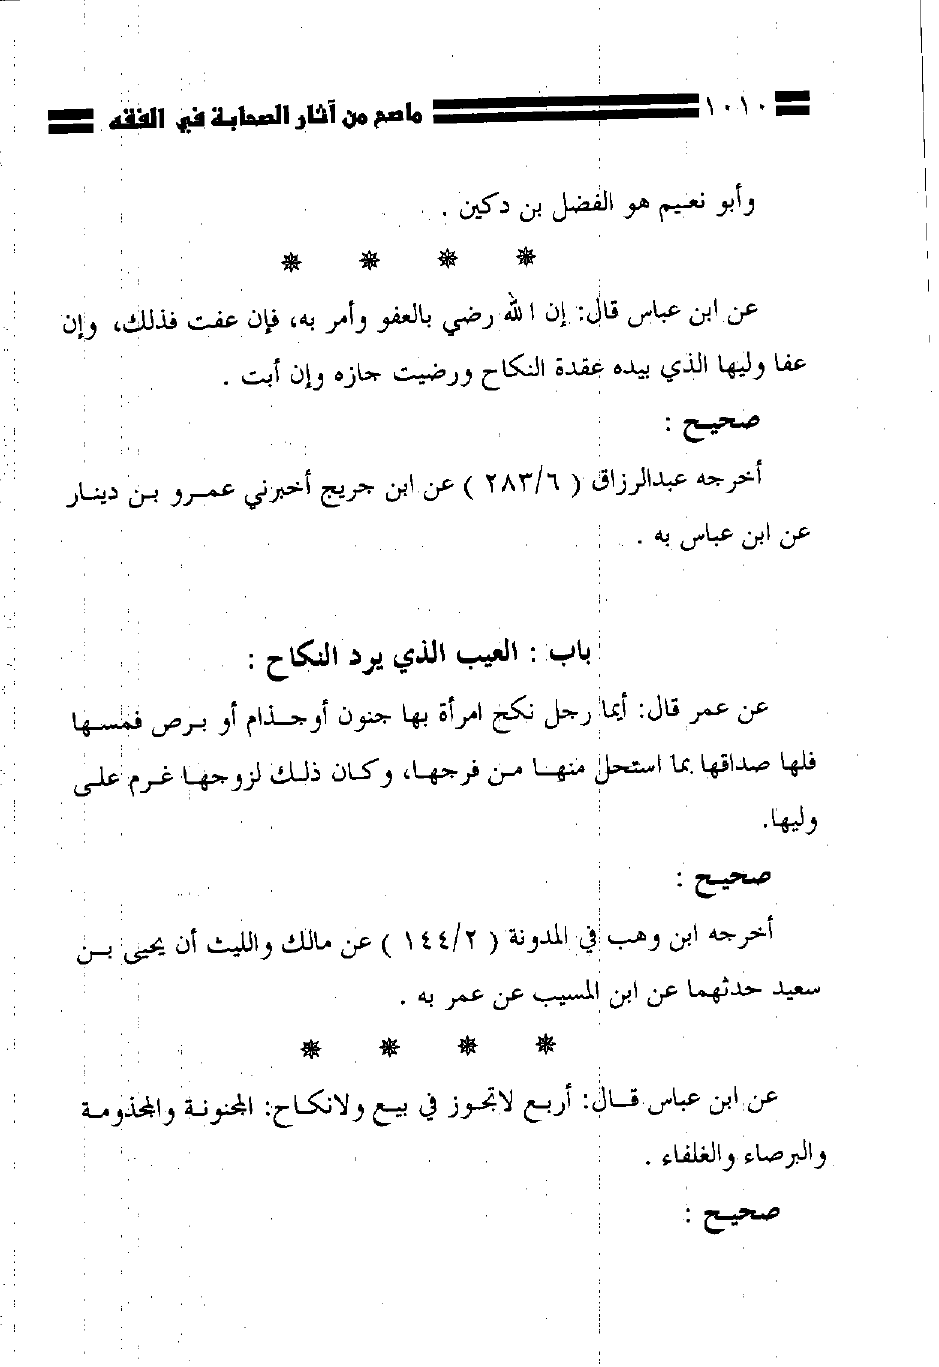 ١٠١٠ ماصح من آثار الصحابة في الفقه
وأبو نعيم هو الفضل بن دكين .
عن ابن عباس قال: إن الله رضي بالعفو وأمر به، فإن عفت فذلك، وإن
عفا وليها الذي بيده عقدة النكاح ورضيت جازه وإن أبت .
صحيح :
أخرجه عبدالرزاق ( ٢٨٣/٦ ) عن ابن جريج أخبرني عمرو بن دينار
عن ابن عباس به .
باب : العيب الذي يرد النكاح :
عن عمر قال: أيما رجل نكح امرأة بها جنون أوجذام أو برص فمسها
فلها صداقها بما استحل منها من فرجها، وكان ذلك لزوجها غرم على
وليها.
صحيح :
أخرجه ابن وهب في المدونة ( ١٤٤/٢ ) عن مالك والليث أن يحيى بن
سعيد حدثهما عن ابن المسيب عن عمر به .
عن ابن عباس قال: أربع لاتجوز في بيع ولانكاح: المجنونة والمجذومة
والبرصاء والغلفاء .
صحيح :